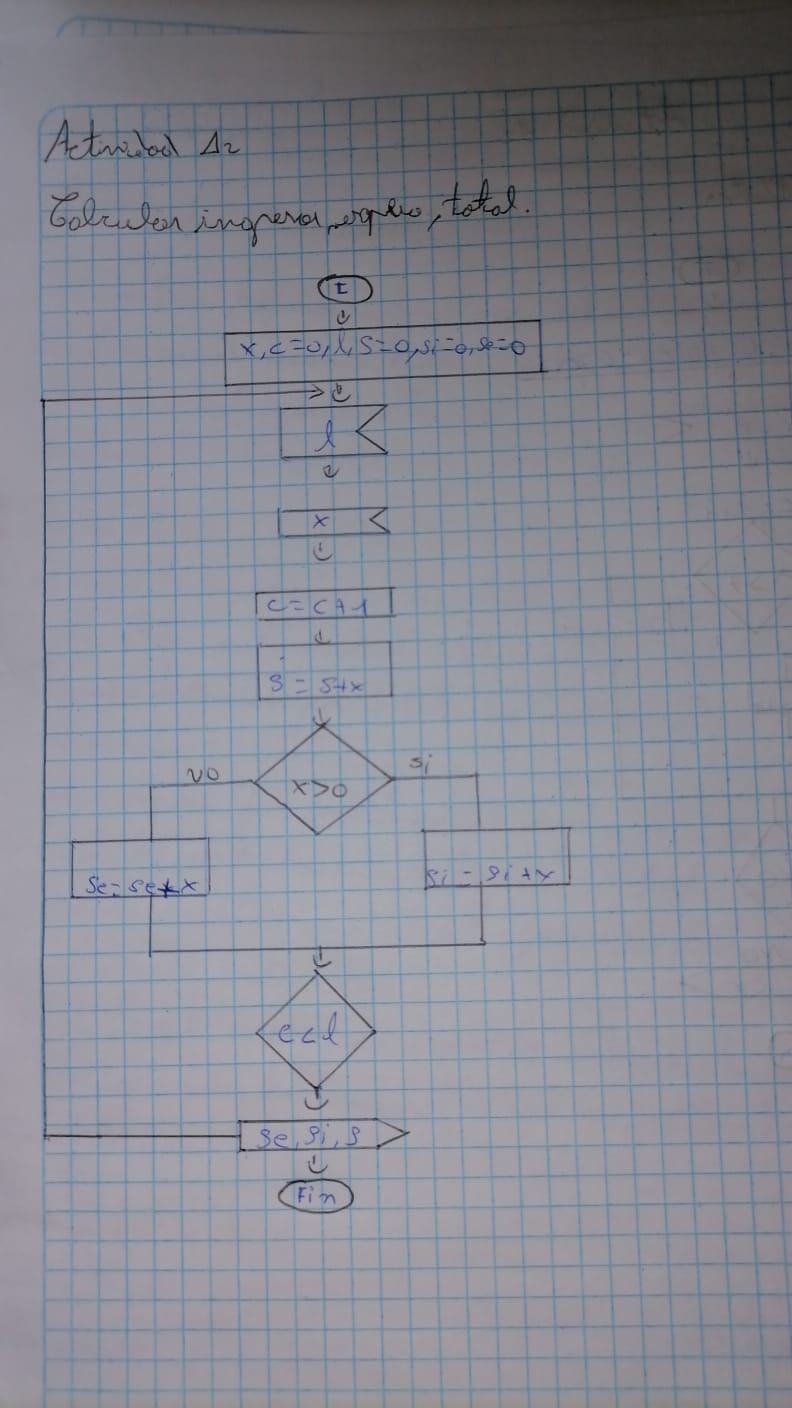 Actividad 12
Calcular ingreso, egreso, total.
I
x, c=0, l, S=0, si=0, se=0
l
x
c = c+1
s = s+x
x>0
NO
si
se = se+x
si = si+x
c<l
se, si, s
Fin